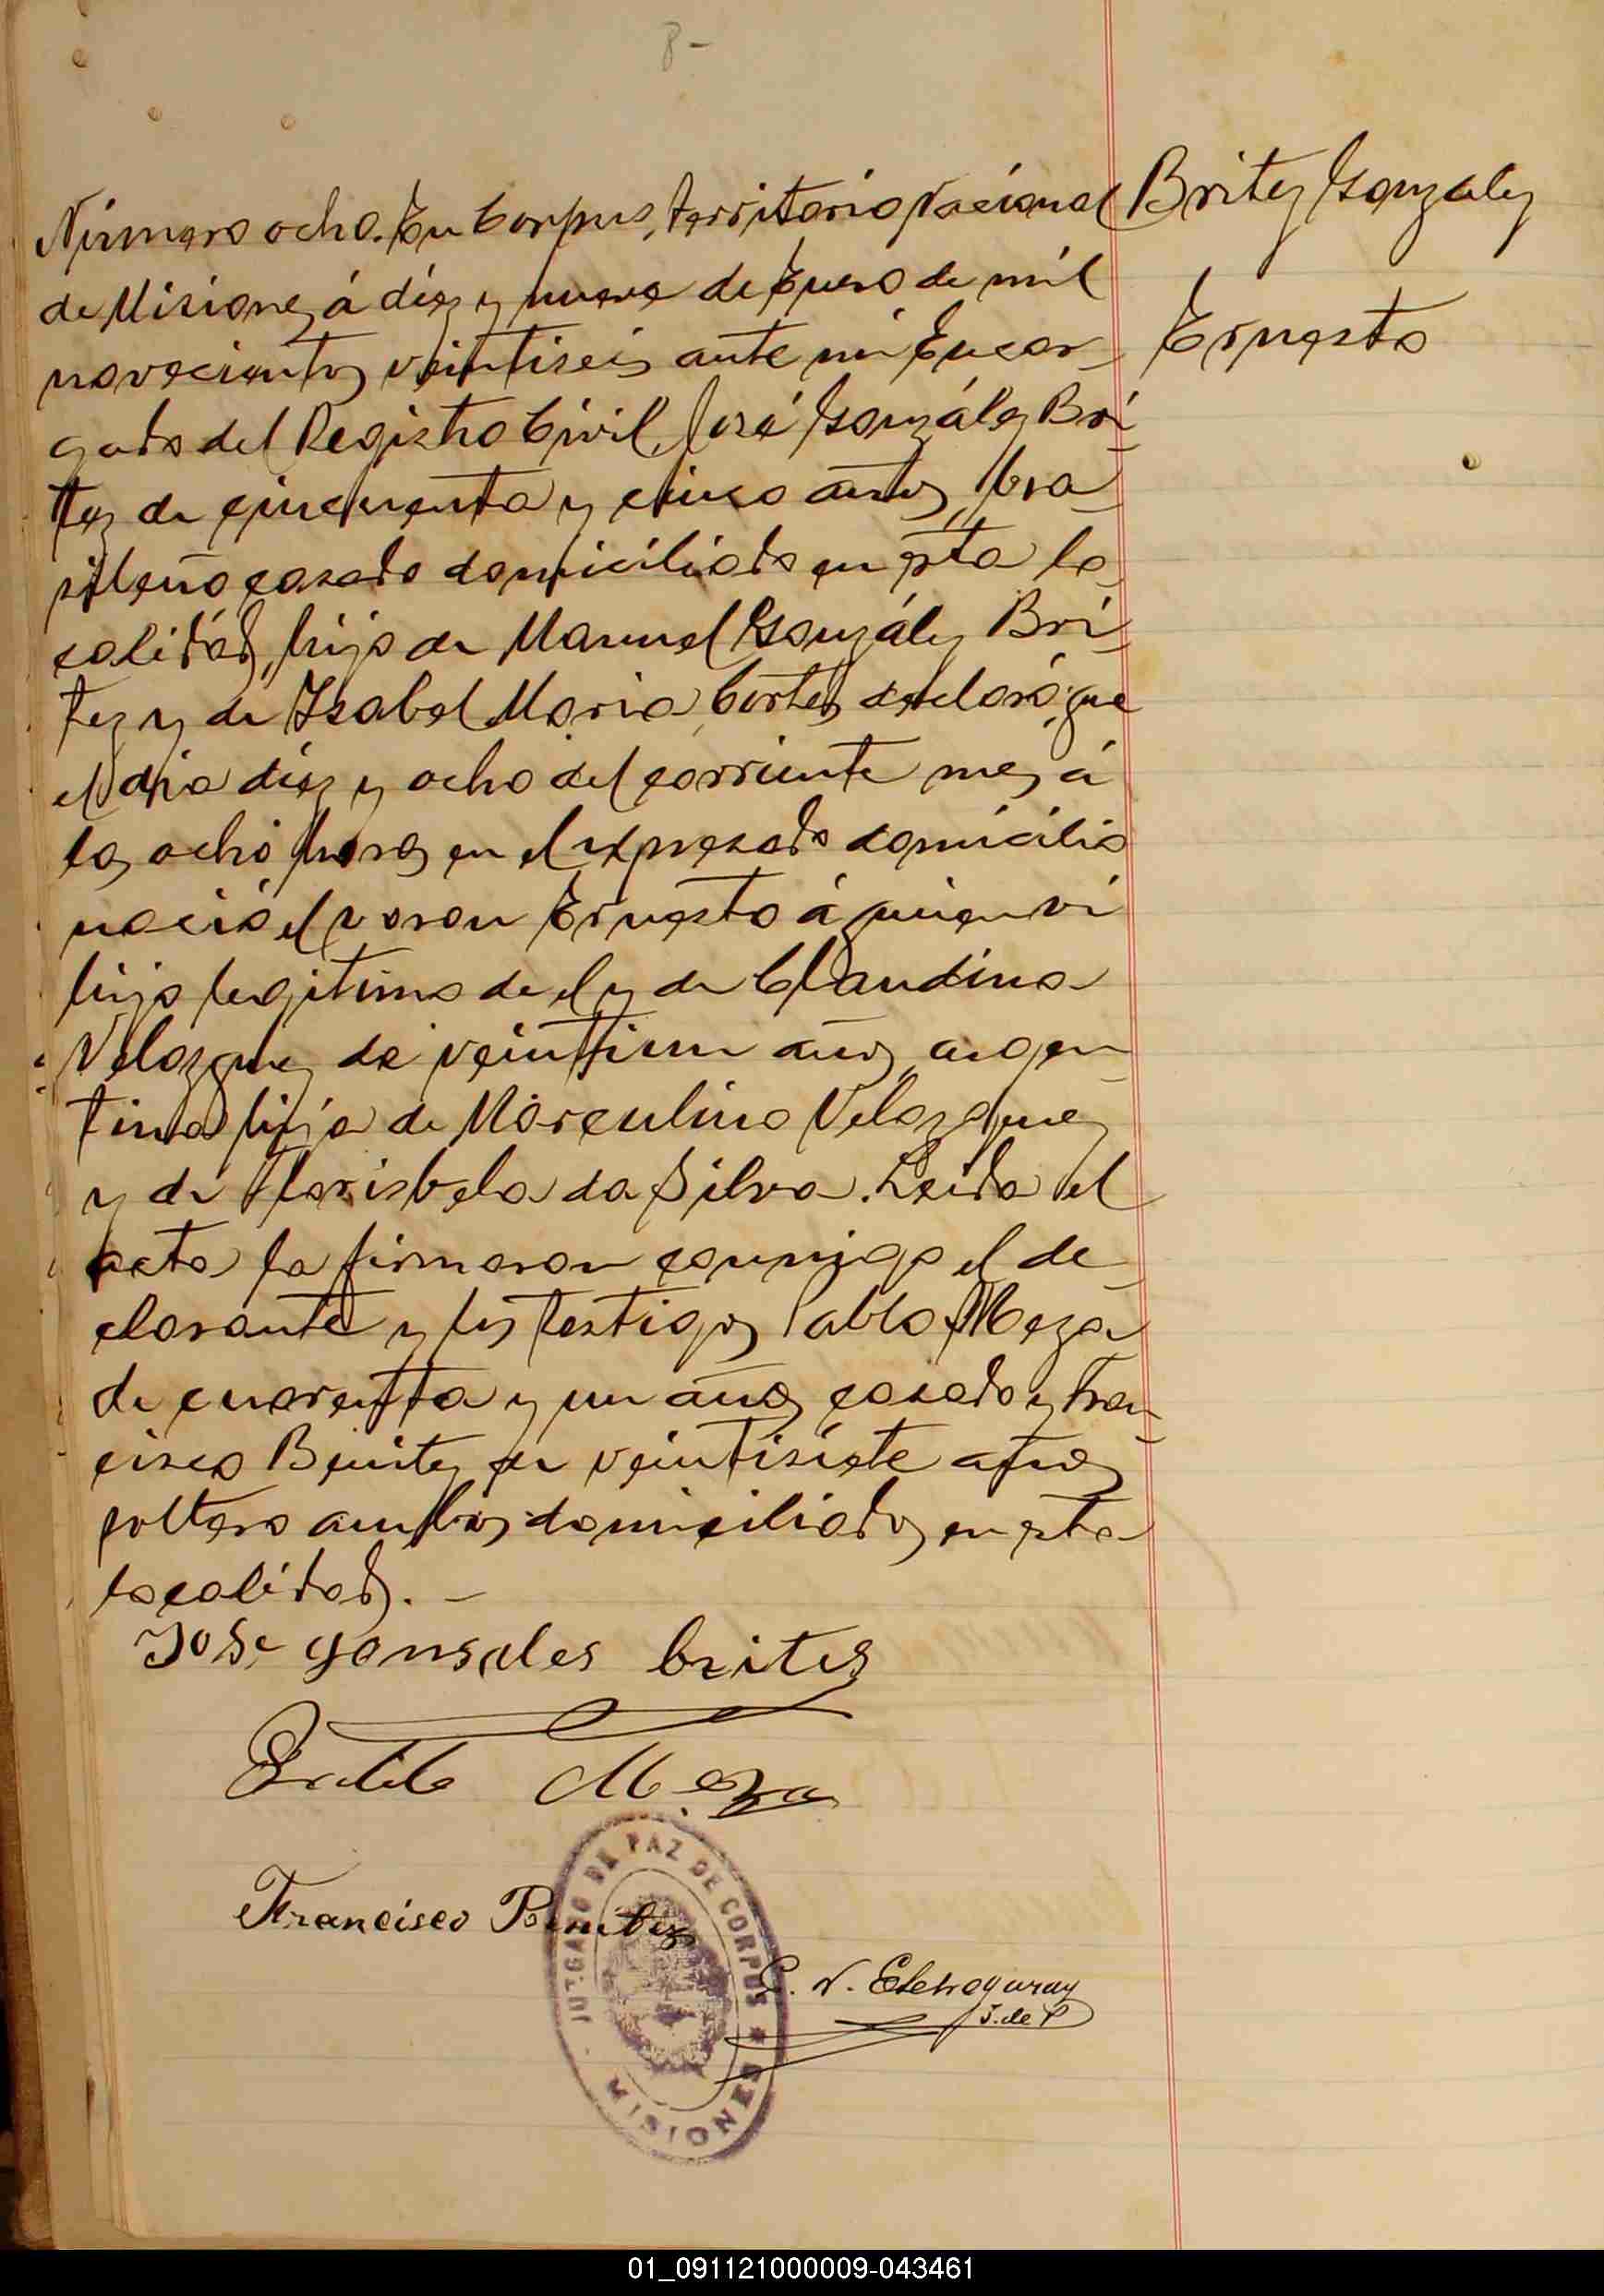 8-
Número ocho. En Corpus, territorio Nacional
de Misiones á diez y nueve de Enero de mil
novecientos veintiseis ante mi Encar-
gado del Registro Civil, José González Bri-
tez de cincuenta y cinco años, bra-
sileño casado domiciliado en esta lo-
calidad, hijo de Manuel González Bri-
tez y de Isabel Maria Cortes declaró: que
el dia diez y ocho del corriente mes á
las ocho horas en el expresado domicilio
nació el varon Ernesto á quien vi
hijo legitimo de el y de Claudina
Velazquez de veintiun años argen-
tina hija de Marculino Velazquez
y de Florisbela da Silva. Leida el
acta la firmaron conmigo el de-
clarante y los testigos Pablo Meza
de cuarenta y un años casado y Fran-
cisco Benitez de veintisiete años
soltero ambos domiciliados en esta
localidad. -
Britez Gonzalez
Ernesto
Jose gonsales brites
Pablo Meza
Francisco Benitez
JUZGADO DE PAZ DE CORPUS
MISIONES
E. N. Etchegaray
J. de P
01_091121000009-043461